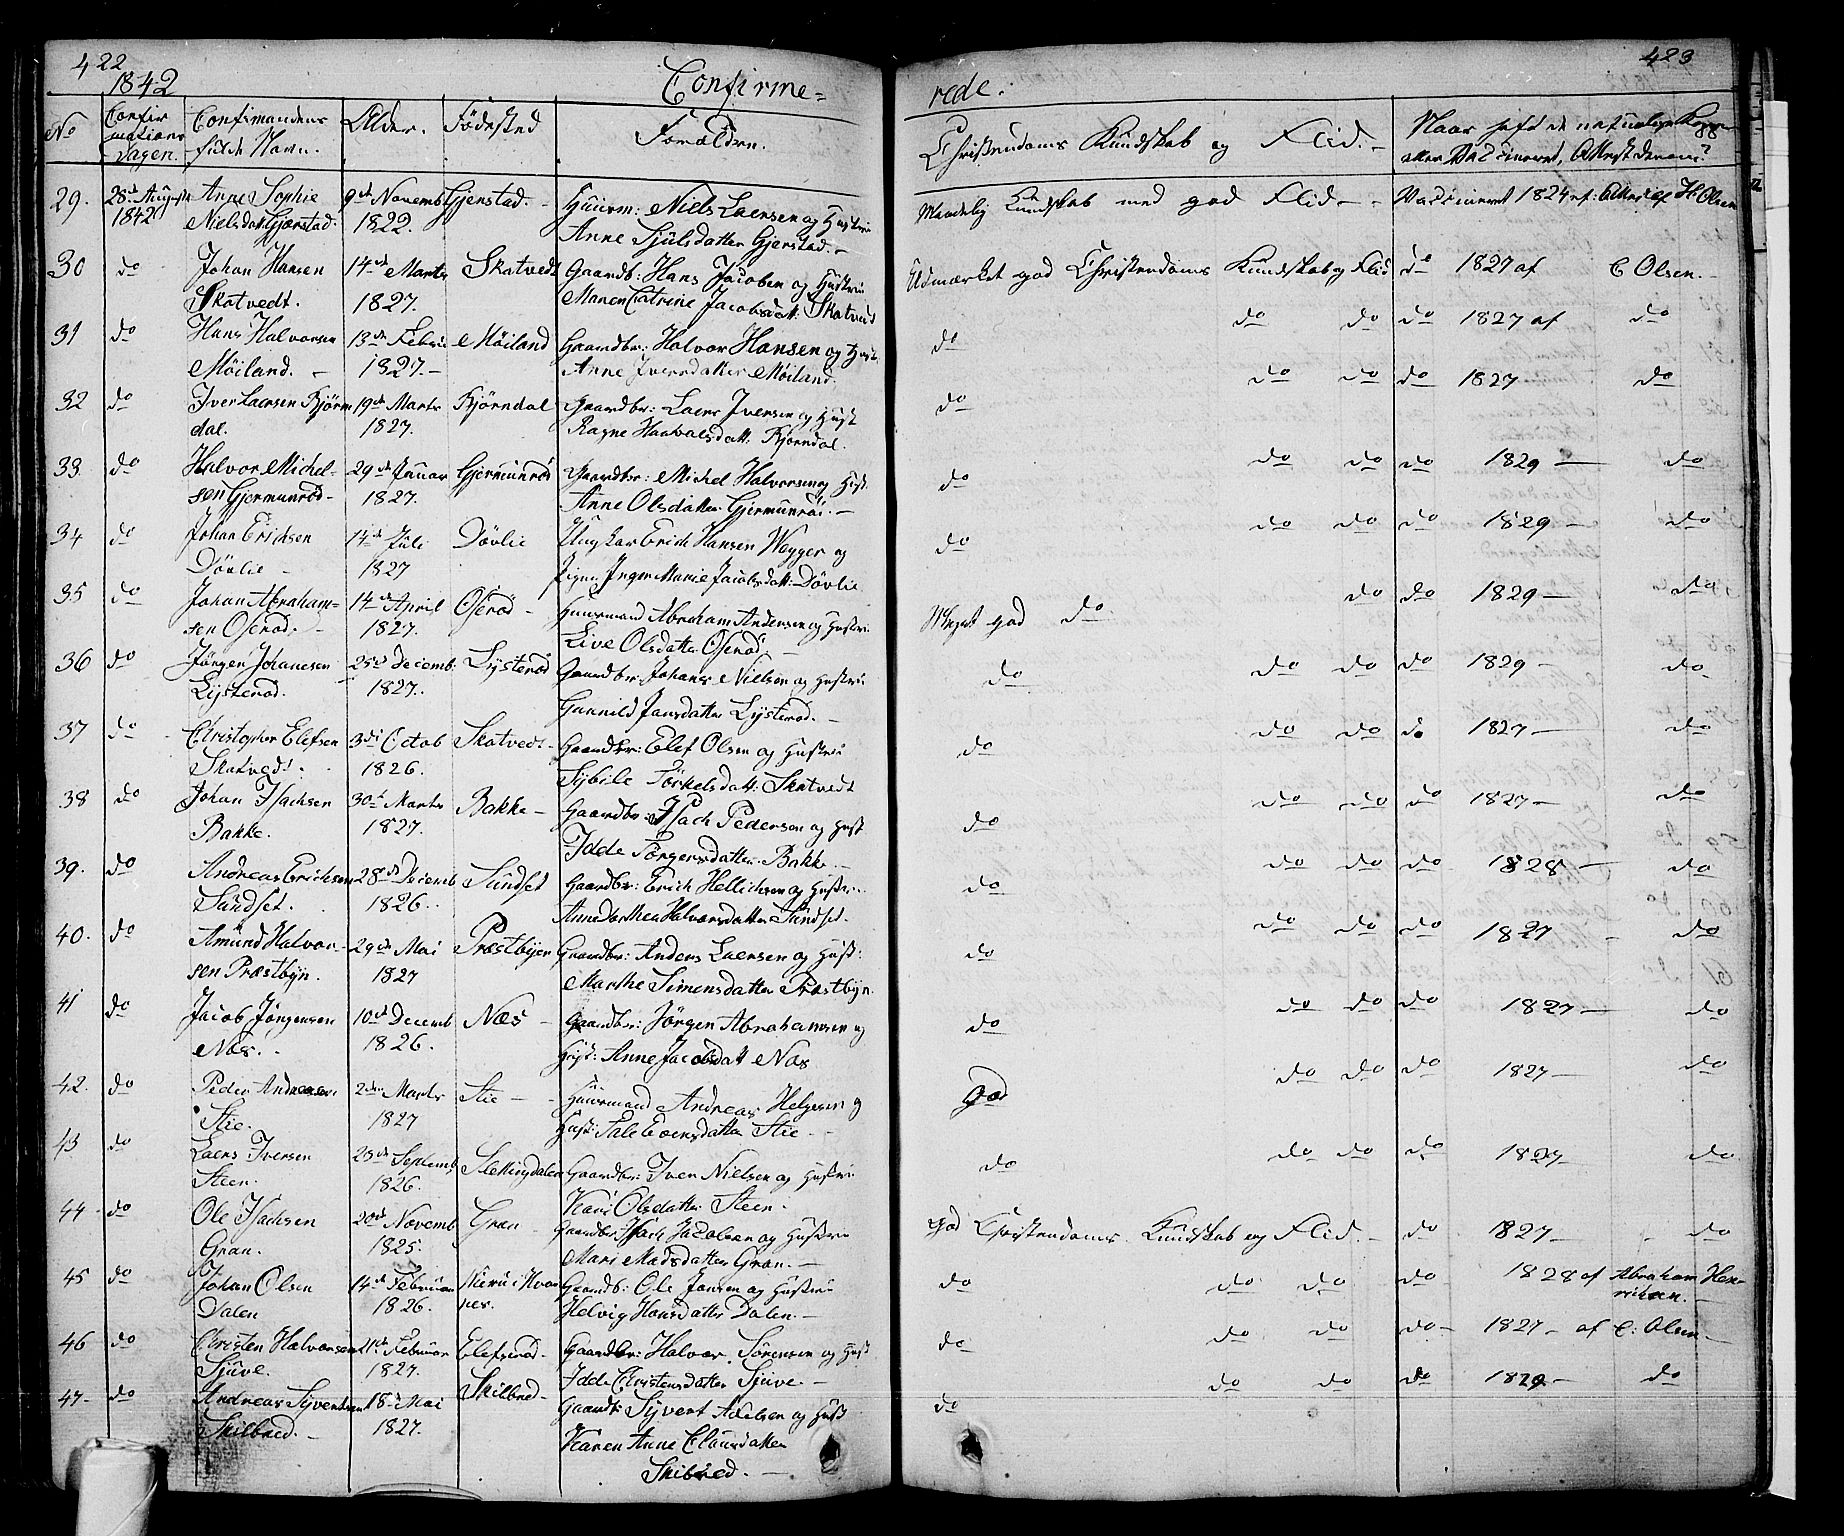 422
1842
Confirme=
No
Confirmations Dagen.
Confirmandens fulde Navn.
Alder.
Fødested
Forældren.
29. 28de August 1842 Anne Sophie Nielsdatt Gjerstad. 9de Novemb 1822. Gjerstad. Huusm: Niels Laersen og Hustru
Anne Sjulsdatter Gjerstad.
30 do Johan Hansen Skatvedt. 14de Marts 1827. Skatvedt Gaardb: Hans Jacobsen og Hustru
Maren Catrine Jacobsdatt: Skatvedt
31 do Hans Halvorsen Møiland. 13de Febru 1827. Møiland Gaardbr: Halvor Hansen og Hust:
Anne Iversdatter Møiland.
32 do Iver Laersen Kjørndal. 19de Marts 1827. Kjørndal Gaardbr: Laers Iversen og Hust
Ragne Haavalsdatt: Kjørndal.
33. do Halvor Michelsen Gjermunrød 29de Januar 1827. Gjermunrød Gaardbr: Michel Halvorsen og Hust.
Anne Olsdatter Gjermunrød.
34 do Johan Erichsen Døvlie 14de Juli 1827 Døvlie Ungkar Erich Hansen Wegger og
Pigen Inger Marie Jacobsdatt: Døvlie
35 do Johan Abrahamsen Oserød. 14de April 1827. Oserød Huusmand Abraham Andersen og Hustru
Live Olsdatter Oserød.
36 do Jørgen Johanesen Lysterød. 25de Decemb. 1827. Lysterød Gaardbr: Johanes Nielsen og Hustru
Gunnild Jansdatter Lysterød.
37 do Christopher Elefsen Skatvedt. 3die Octob 1826. Skatvedt Gaardbr: Elef Olsen og Hustru
Sybile Torkelsdatt: Skatvedt
38 do Johan Isachsen Bakke. 30te Marts 1827. Bakke Gaardbr: Isach Pedersen og Hust
Idde Torgersdatter Bakke
39. do Andreas Erichsen Sundset. 28de Decemb 1826. Sundset Gaardbr: Erich Hellichsen og Hustru
Anne Dorthea Halvorsdatter Sundset.
40. do Amund Halvorsen Præstbyn. 29de Mai 1827 Præstbyen Gaardbr: Anders Laersen og Hust:
Marthe Simensdatter Præstbyn
41 do Jacob Jørgensen Næs. 10de Decemb 1826. Næs Gaardbr: Jørgen Abrahamsen og
Hust: Anne Jacobsdatt Næs
42. do Peder Andreasen Stie. 2den Marts 1827 Stie Huusmand Andreas Helgesen og
Hust: Stie
43 do Laers Iversen Steen. 23de Septemb 1826. Slettingdalen Gaardbr: Iver Nielsen og Hustru
Kari Olsdatter Steen.
44 do Ole Isachsen Gran. 20de Novemb 1825. Gran Gaardbr: Isach Jacobsen og Hustru
Mari Madsdatter Gran.
45 do Johan Olsen Dalen 14de Februar 1826. Gaardb: Ole Jansen og Hustru
Helvig Hansdatter Dalen
46 do Christen Halvorsen Sjuve. 11te Februar 1827. Elefsrød Gaardbr: Halvor Sørensen og Hust
Idde Christensdatter Sjuve.
47 do Andreas Syvertsen Skilbred. 18de Mai 1827. Skilbred Gaardb: Syvert Axelsen og Hust
Karen Anne Clausdatter
Skibred.
423
rede.
Christendoms Kundskab og Flid.
Naar haft de naturlige Kopper eller Vaccineret, Attest derom?
88
Maadelig Kundskab med god Flid Vaccineret 1824 af: Attest af H: Olsen
Udmærket god Christendoms Kundskab og Flid do 1827 af C Olsen.
do do do do 1827 af do
do do do do 1827 do
do do do do 1829 do
do do do do 1829 do
Meget god do do do 1829 do
do do do do 1829 do
do do do do 1827 do
do do do do 1827 do
do do do do 1828 do
do do do do 1827 do
do do do do 1827 do
god do do do 1827 do
do do do do 1827 do
god Christendoms Kundskab og Flid. do 1827 do
do do do do 1828 af Abraham Henrichsen.
do do do do 1827 af C: Olsen
do do do do 1829 do